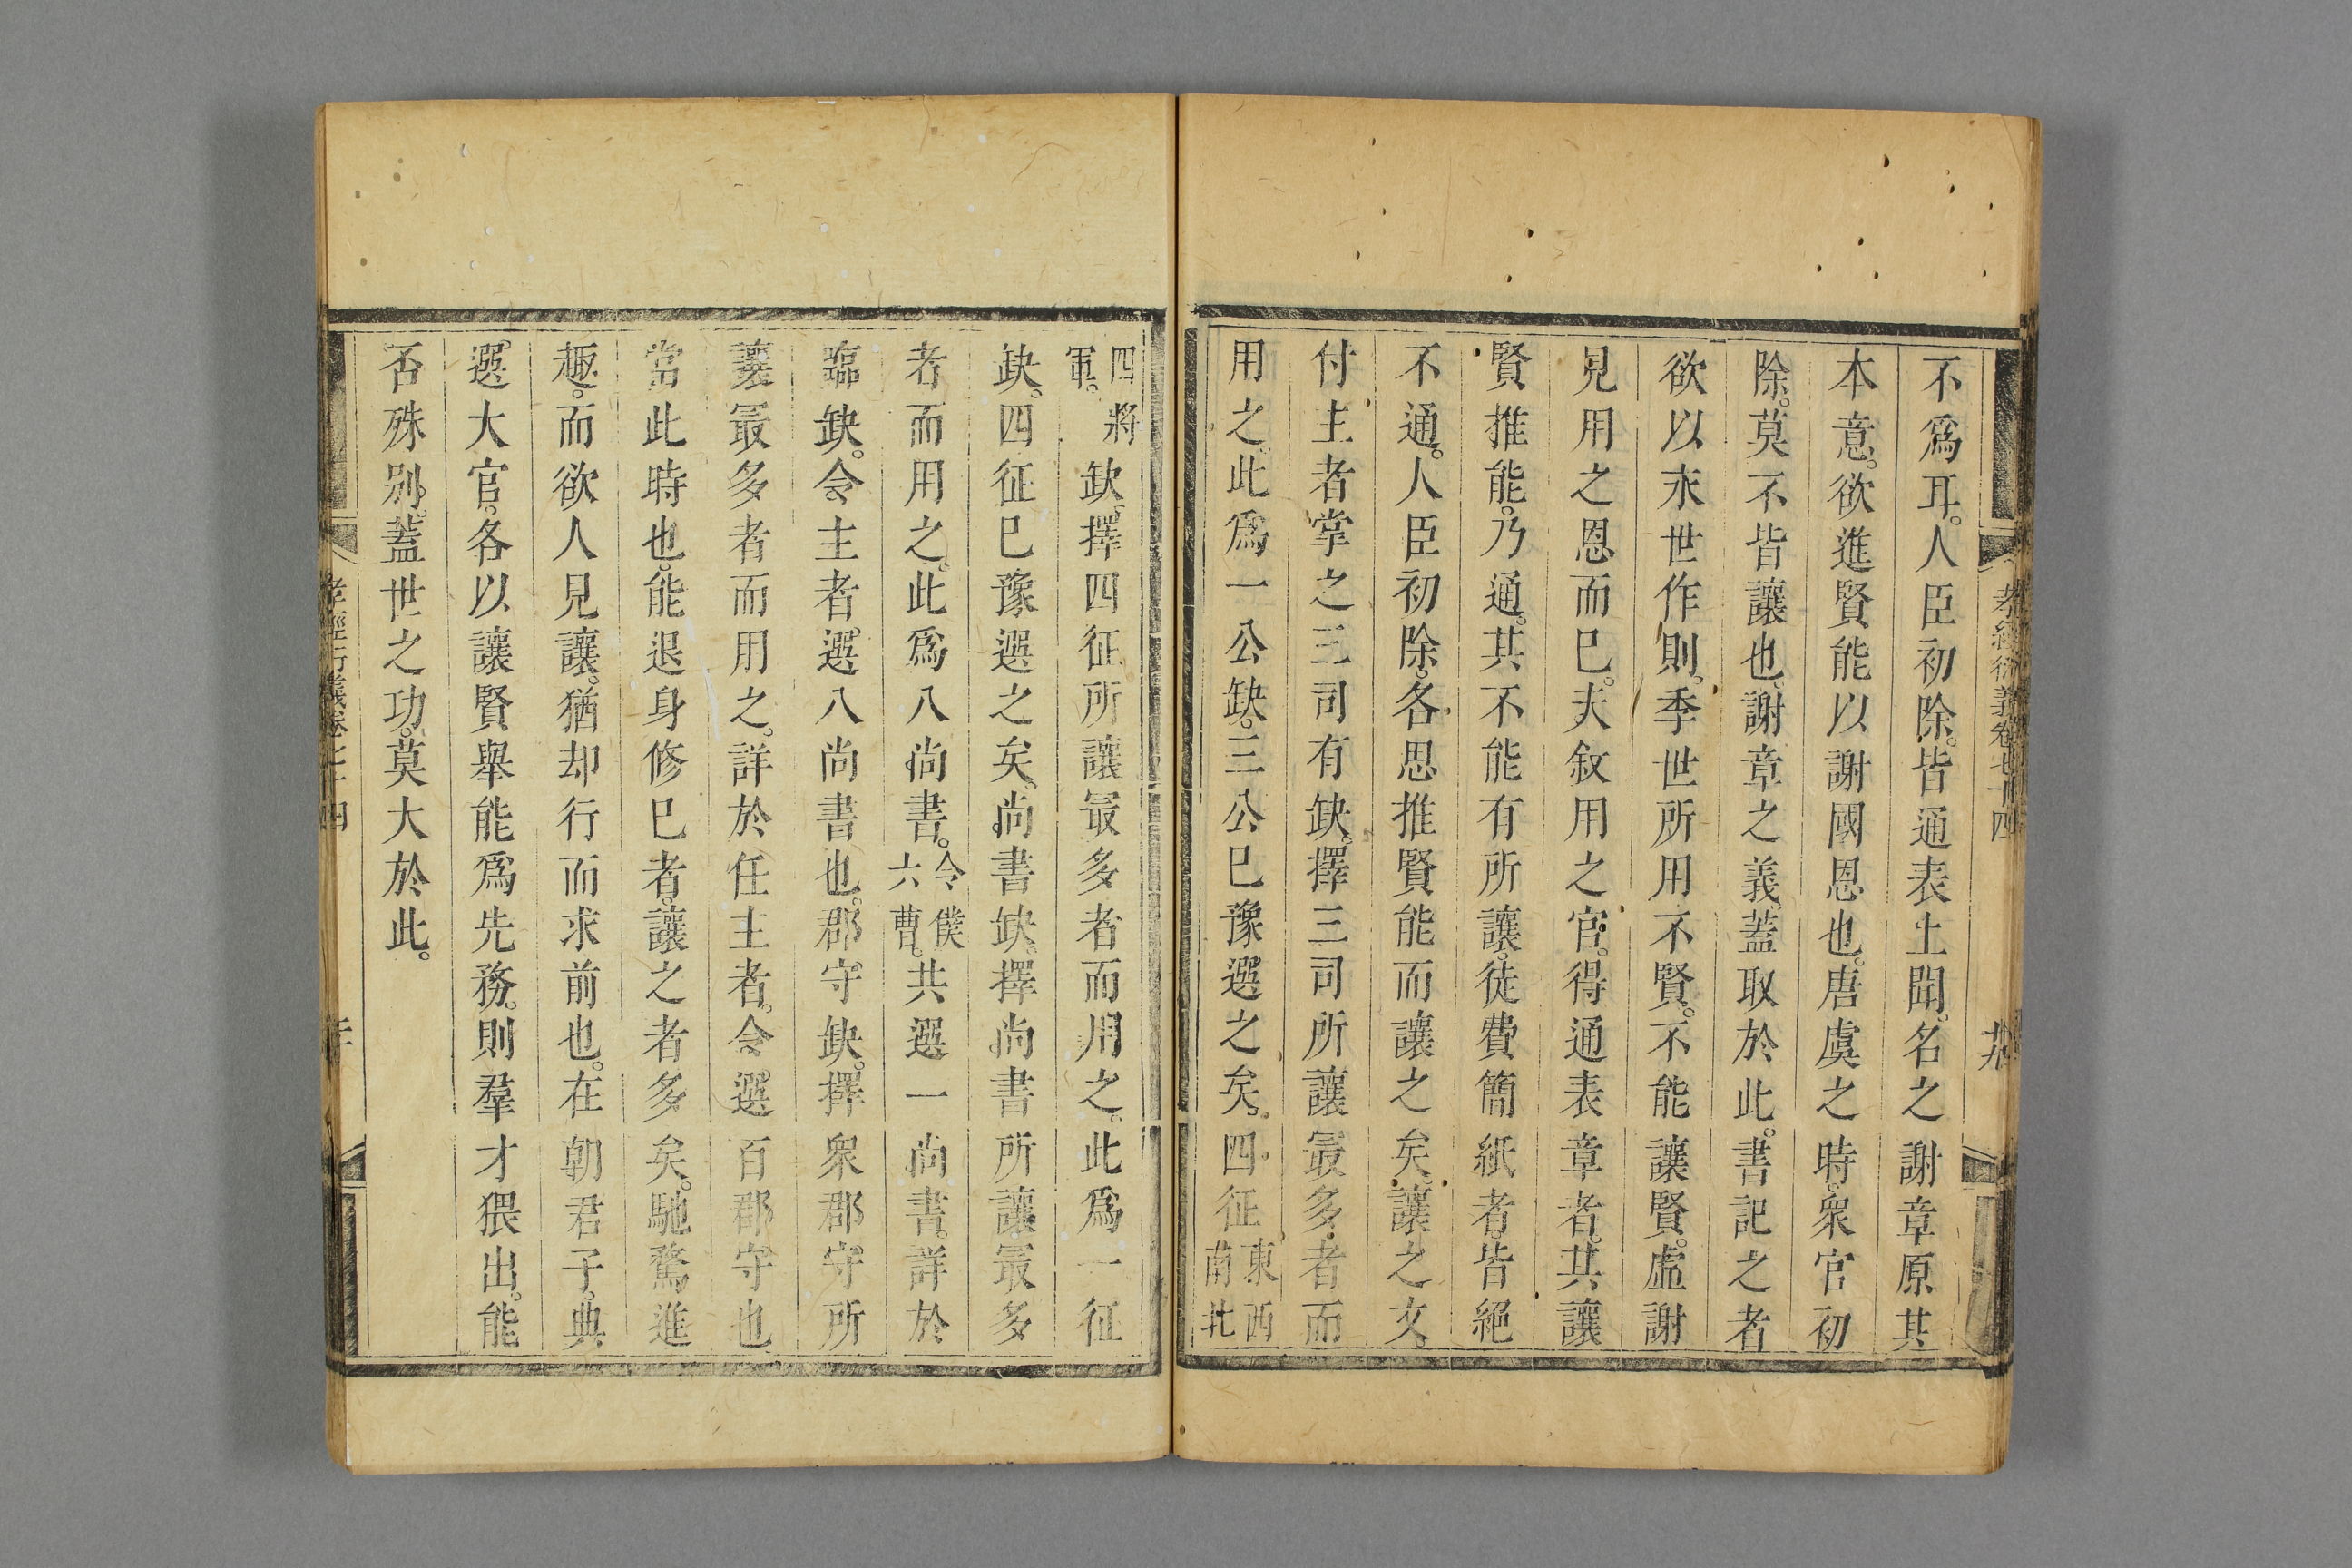 孝經衍義卷七十四 十九
不爲耳。人臣初除。皆通表上聞。名之謝章原其
本意。欲進賢能以謝國恩也。唐虞之時。衆官初
除。莫不皆讓也。謝章之義。蓋取於此。書記之者
欲以永世作則。季世所用不賢。不能讓賢。虛謝
見用之恩而已。夫敘用之官。得通表章者。其讓
賢推能。乃通。其不能有所讓。徒費簡紙者。皆絕
不通。人臣初除。各思推賢能而讓之矣。讓之文。
付主者掌之三司有缺。擇三司所讓最多者而
用之。此爲一公缺。三公已豫選之矣。四征東西南北
四將軍。缺。擇四征所讓最多者而用之。此爲一征
缺。四征已豫選之矣。尚書缺。擇尚書所讓最多
者而用之。此爲八尚書。令僕六曹。共選一尚書。詳於
臨缺。令主者。選八尚書也。郡守缺。擇衆郡守所
讓最多者而用之。詳於任主者。令選百郡守也
當此時也。能退身修已者。讓之者多矣。馳騖進
趣。而欲人見讓。猶却行而求前也。在朝君子。典
選大官。各以讓賢舉能爲先務。則羣才猥出。能
否殊別。蓋世之功。莫大於此。
孝經衍義卷七十四 二十